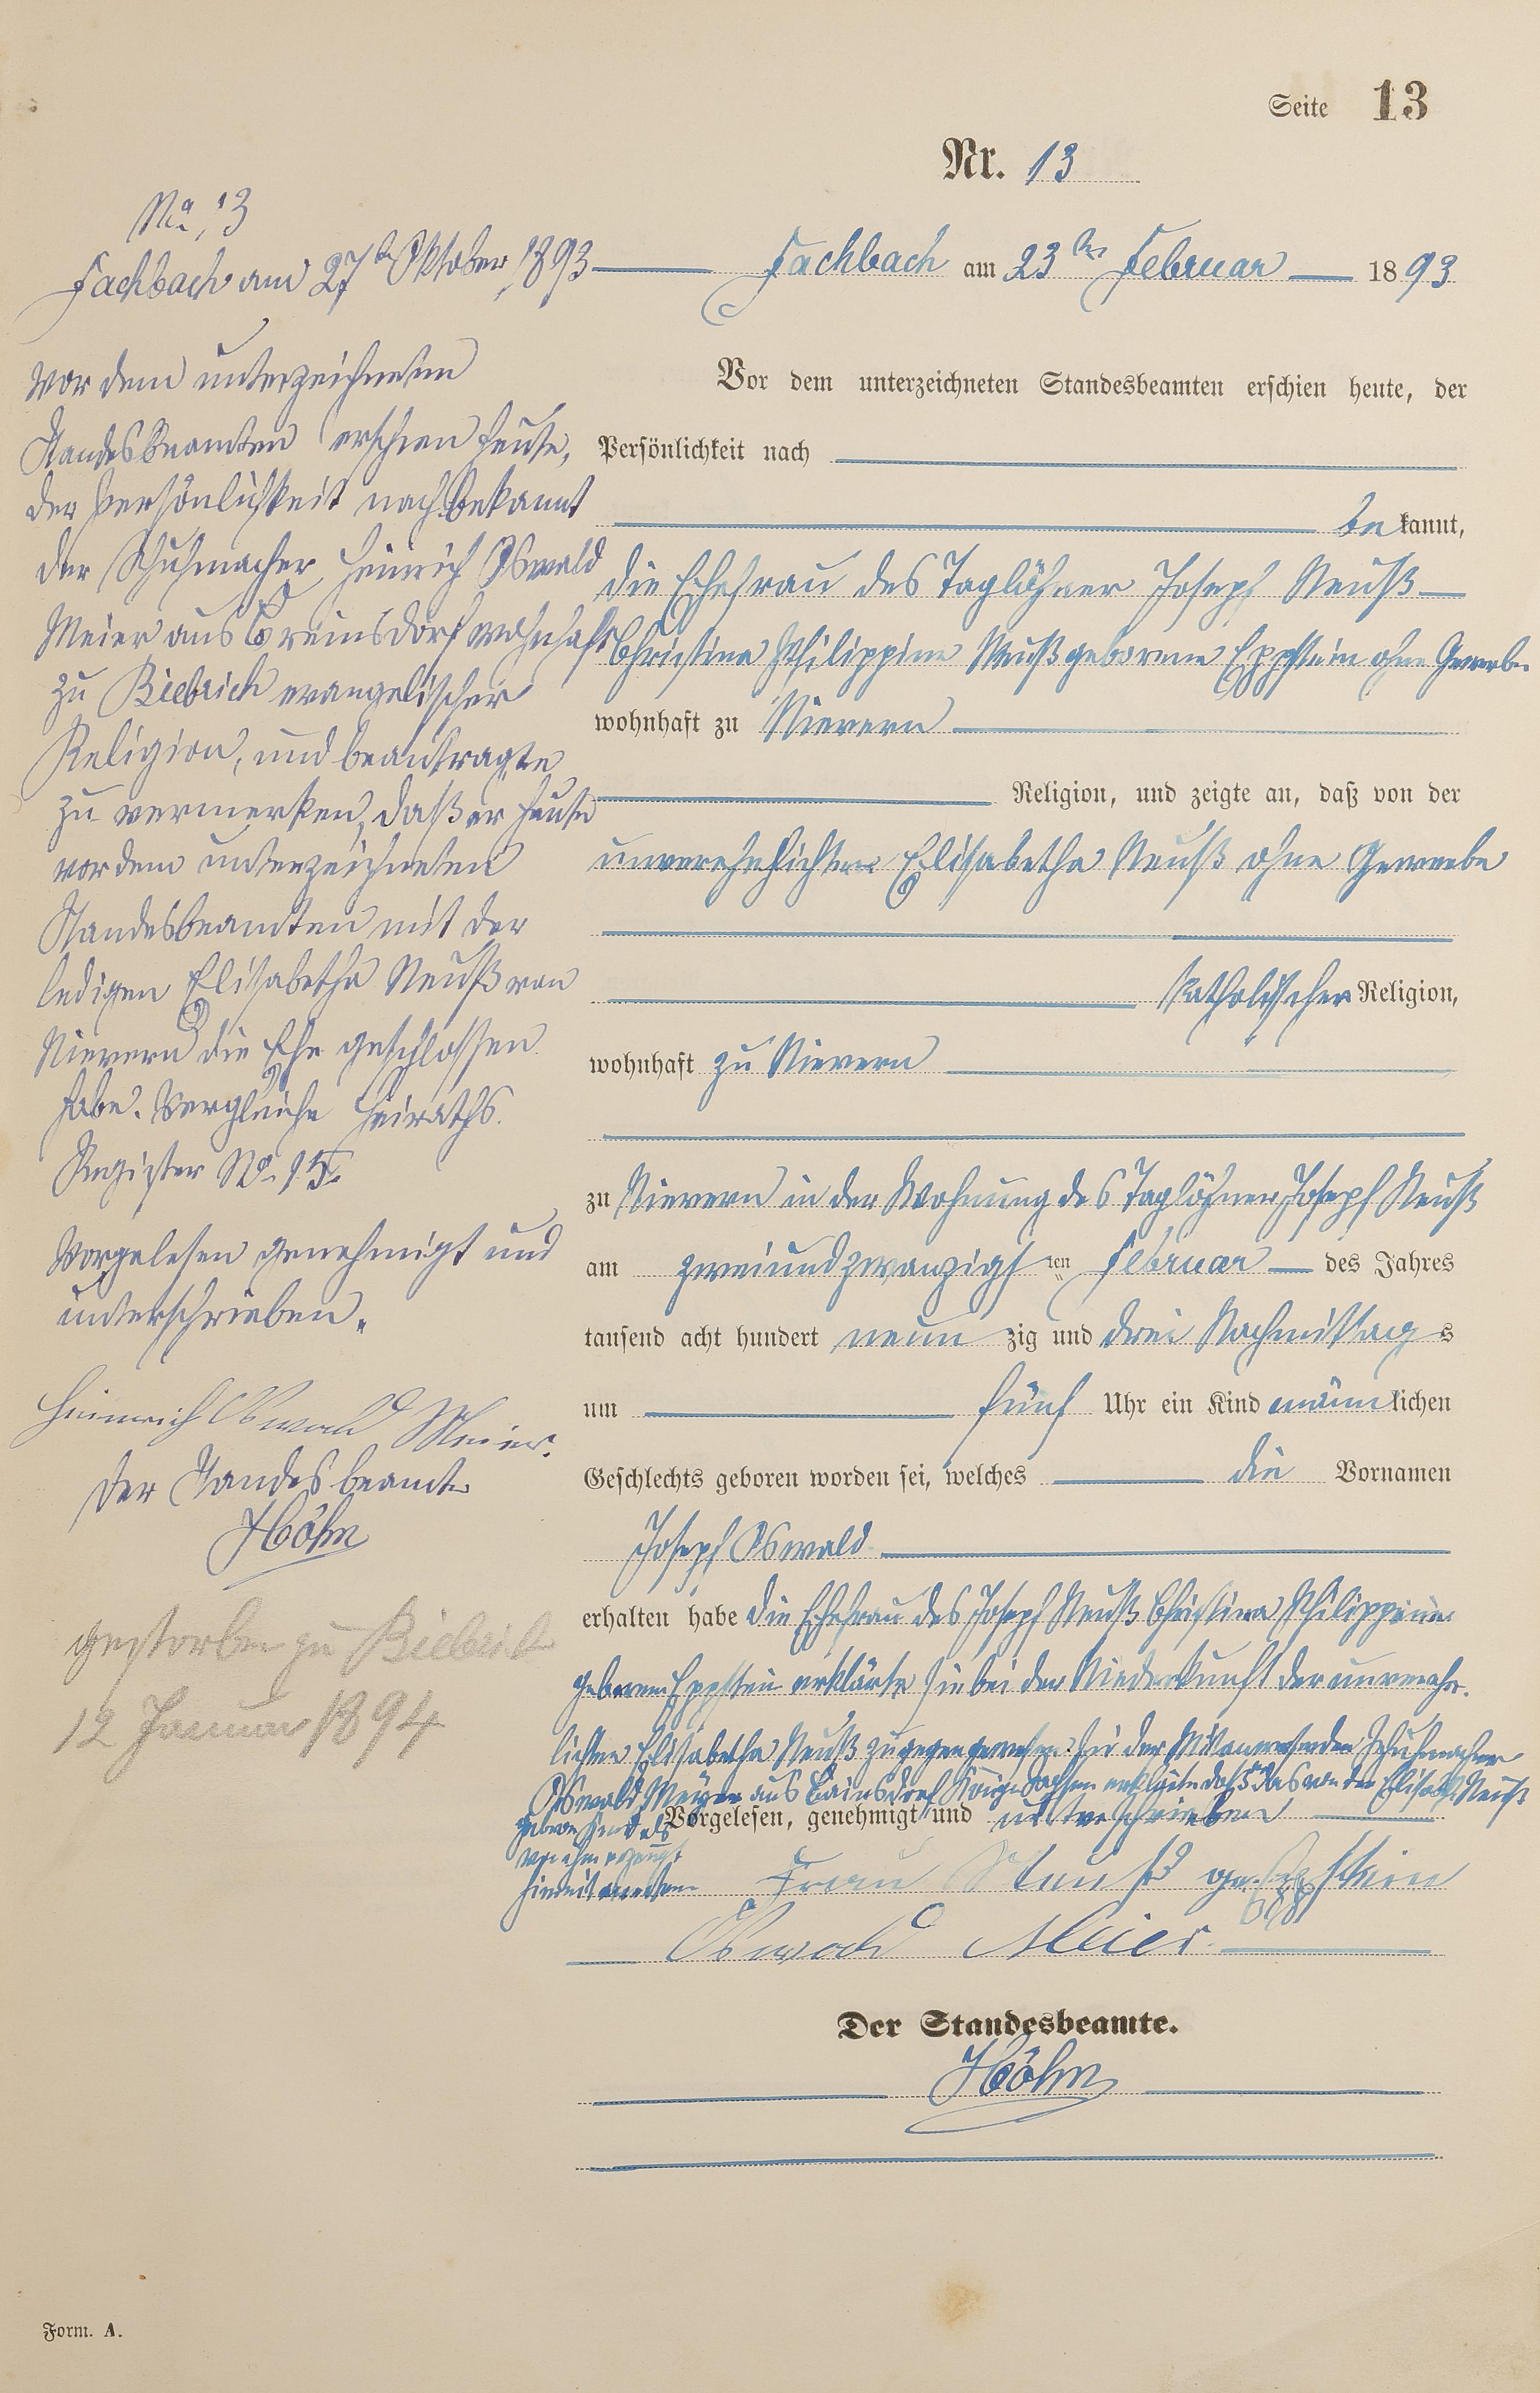 Seite 13
Nr. 13
Fachbach am 23ten Februar 1893
Vor dem unterzeichneten Standesbeamten erschien heute, der
Persönlichkeit nach
bekannt,
die Ehefrau des Taglöhner Joseph Neuß
Christina Philippine Neuß geborene Eppstein ohne Gewerbe
wohnhaft zu Nievern
Religion, und zeigte an, daß von der
unverehelichten Elisabetha Neuß ohne Gewerbe
katholischer Religion,
wohnhaft zu Nievern
zu Nievern in der Wohnung des Taglöhner Joseph Neuß
am zweiundzwanzigsten Februar des Jahres
tausend acht hundert neunzig und drei Nachmittags
um fünf Uhr ein Kind männlichen
Geschlechts geboren worden sei, welches die Vornamen
Joseph Oswald
erhalten habe die Ehefrau des Joseph Neuß Christina Philippine
geborene Eppstein erklärte sie bei der Niederkunft der unverehe-
lichten Elisabetha Neuß zugegen gewesen. der Mitanwesenden Schuhmacher
Oswald Meier aus erklärte daß das von der Elisab. Neuß
geborene Kind als
von ihm erzeugt
hiermit
Vorgelesen, genehmigt und unterschrieben
Frau Neuß ge. Eppstein
Oswald Meier
Der Standesbeamte.
Höhn
No. 13
Fachbach am 27ten Oktober 1893
Vor dem unterzeichneten
Standesbeamten erschien heute,
der Persönlichkeit nach bekannt
der Schuhmacher Heinrich Oswald
Meier aus wohnhaft
zu Biebrich evangelischer
Religion, und beantragte
zu vermerken, daß er heute
vor dem unterzeichneten
Standesbeamten mit der
ledigen Elisabetha Neuß von
Nievern die Ehe geschlossen
habe. Vergleiche Heiraths-
Register No. 15.
Vorgelesen genehmigt und
unterschrieben.
Heinrich Oswald Meier.
Der Standesbeamte
Höhn
gestorben zu Biebrich
12 Januar 1894
Form. A.